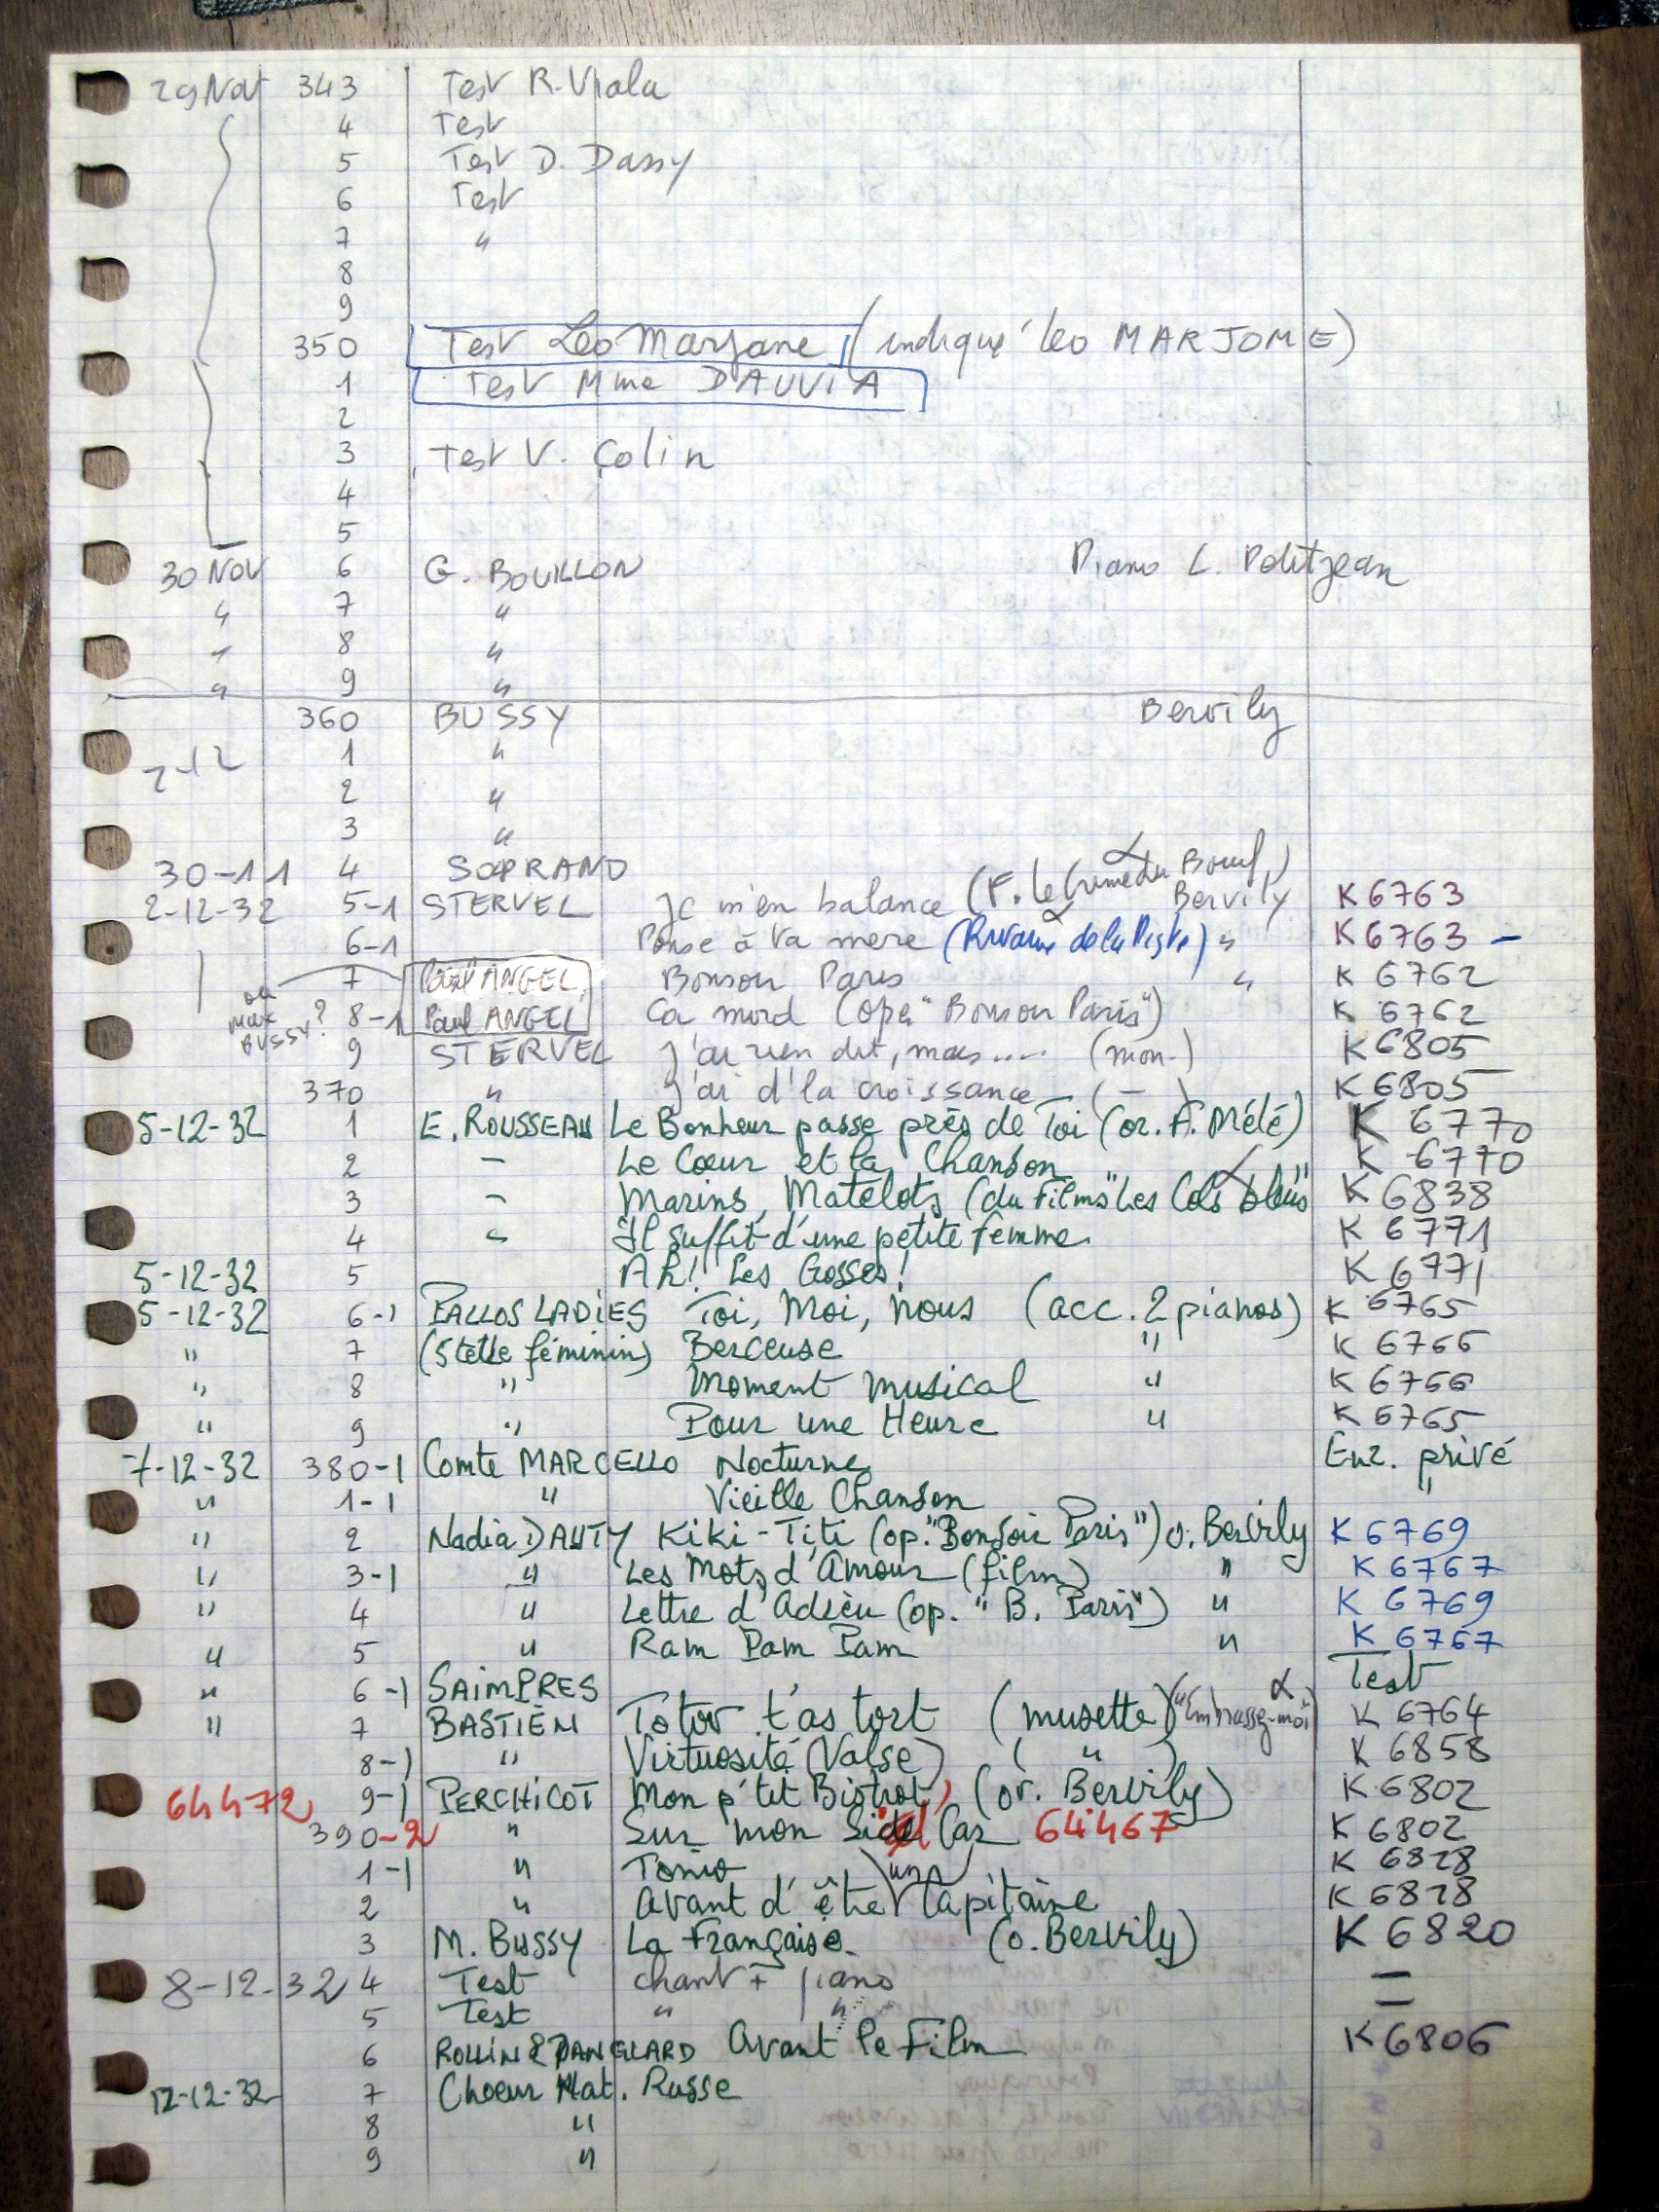 29 Nov 343 Test R. Viala
4 Test
5 Test D. Dassy
6 Test
7 "
8
9
350 Test Leo Marjane (indiqué Leo MARJOME)
1 Test Mme DAUVIA
2
3 Test V. Colin
4
5
30 Nov 6 G. BOUILLON Piano L. Petitjean
" 7 "
" 8 "
" 9 "
360 BUSSY Bervily
2-12 1 "
2 "
3 "
30-11 4 SOPRANO
2-12-32 5-1 STERVEL Je m'en balance (F. Le Crime du Bouif) Bervily K 6763
6-1 Pense à ta mère (Rivaux de la Piste) " K 6763 -
7 Paul ANGEL Bonsoir Paris " K 6762
ou Max BUSSY? 8-1 Paul ANGEL Ca mord (opé "Bonsoir Paris") K 6762
9 STERVEL J'ai rien dit, mais .... (mon.) K 6805
370 " J'ai d'la croissance (-) K 6805
5-12-32 1 E. ROUSSEAU Le Bonheur passe près de Toi (or. F. Mélé) K 6770
2 - Le Cœur et la Chanson K 6770
3 - Marins, Matelots (du Films "Les Cols bleus" K 6838
4 - Il suffit d'une petite femme K 6771
5-12-32 5 Ah! Les Gosses! K 6771
5-12-32 6-1 PALLOS LADIES Toi, Moi, Nous (acc. 2 pianos) K 6765
" 7 (5tette féminin) Berceuse " K 6766
" 8 " Moment musical " K 6766
" 9 " Pour une Heure " K 6765
7-12-32 380-1 Comte MARCELLO Nocturne Enr. privé
" 1-1 " Vieille Chanson "
" 2 Nadia DAUTY Kiki-Titi (op. "Bonsoir Paris") o. Bervily K 6769
" 3-1 " Les Mots d'Amour (film) " K 6767
" 4 " Lettre d'Adieu (op. "B. Paris") " K 6769
" 5 " Ram Pam Pam " K 6767
" 6-1 SAIMPRES Test
" 7 BASTIEN Totor t'as tort (musette) ("Embrassez-moi) K 6764
8-1 " Virtuosité (Valse) ( " ) K 6858
64472 9-1 PERCHICOT Mon p'tit Bistrot, (or. Bervily) K 6802
390-2 " Sur mon Side Car 64467 K 6802
1-1 " Tonio K 6828
2 " Avant d'être un Capitaine K 6828
3 M. BUSSY La Française (o. Bervily) K 6820
8-12-32 4 Test chant + piano -
5 Test " " -
6 ROLLIN & DANGLARD Avant le Film K 6806
12-12-32 7 Choeur Nat. Russe
8 "
9 "